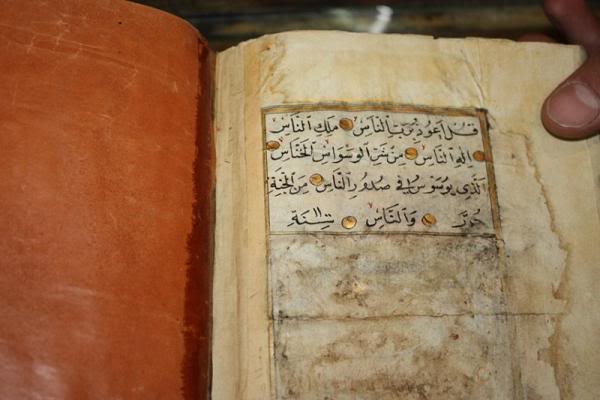 قُلْ اَعُوذُ بِرَبِّ النَّاسِ مَلِكِ النَّاسِ
اِلٰهِ النَّاسِ مِنْ شَرِّ الْوَسْوَاسِ الْخَنَّاسِ
اَلَّذِي يُوَسْوِسُ فِي صُدُورِ النَّاسِ مِنَ الْجِنَّةِ
حُرِّرَ وَالنَّاسِ سنة ١١